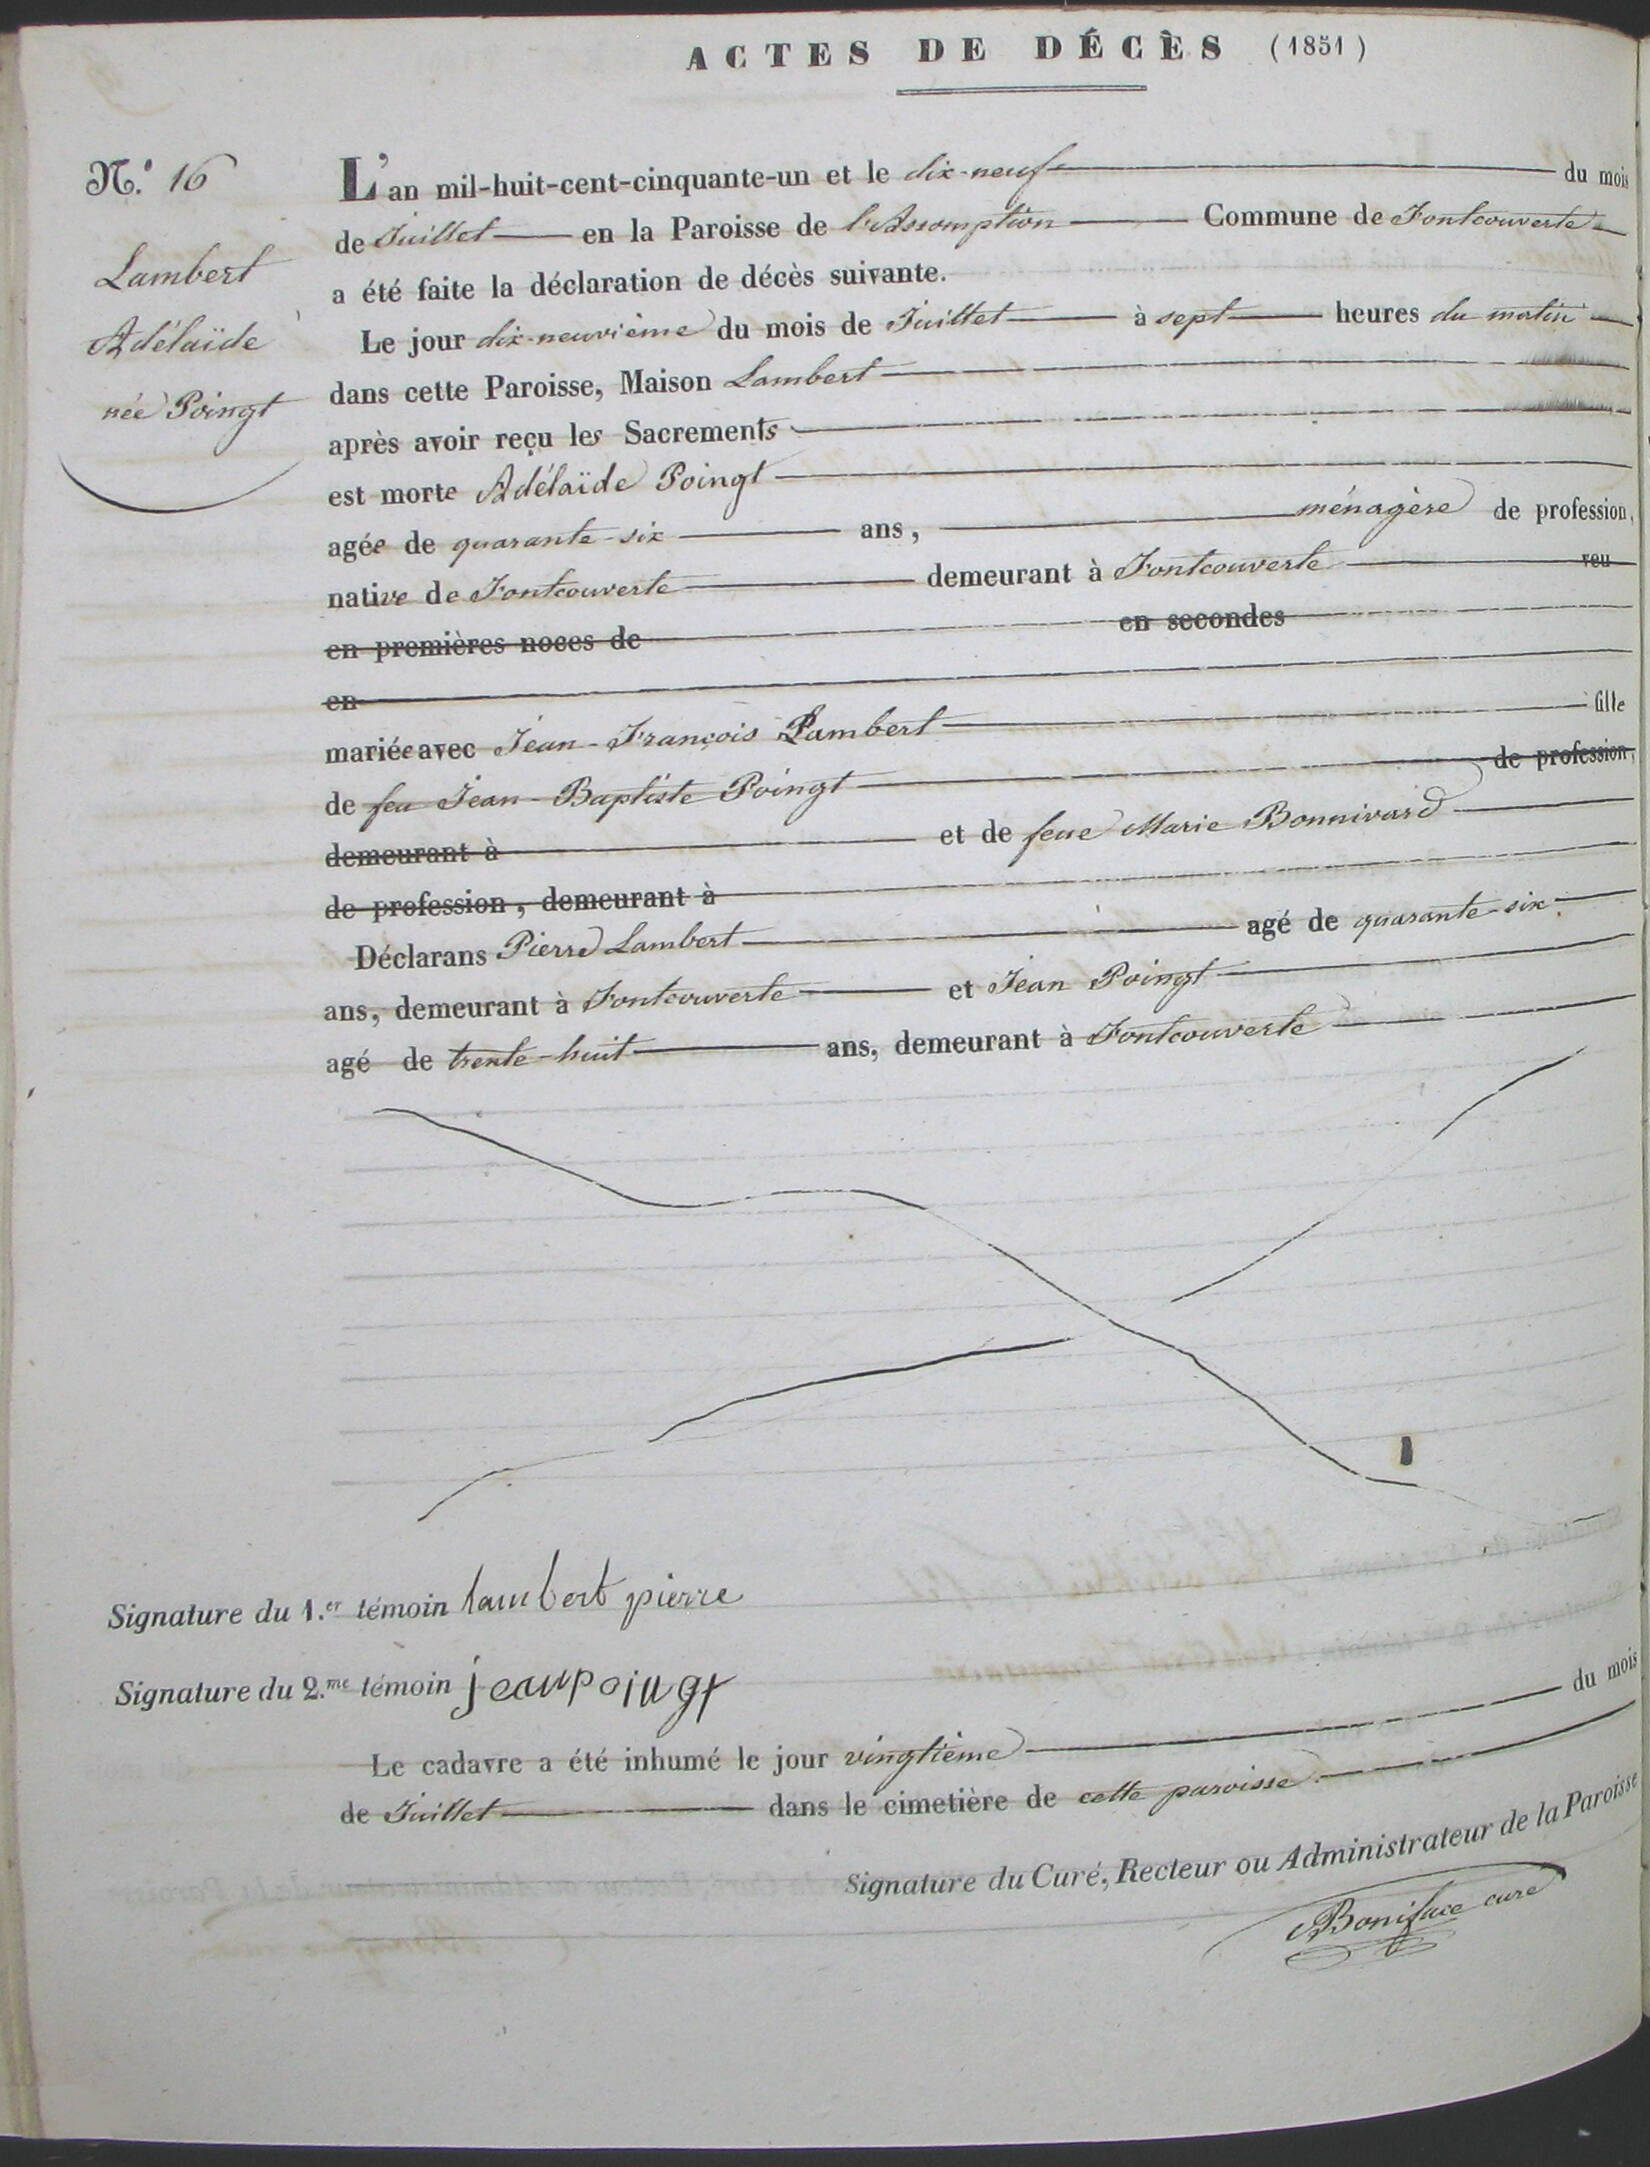 ACTES DE DÉCÈS (1851)
N.° 16
Lambert
Adélaïde
née Poingt
L'an mil-huit-cent-cinquante-un et le dix-neuf du mois
de Juillet en la Paroisse de l'Assomption Commune de Fontcouverte
a été faite la déclaration de décès suivante.
Le jour dix-neuvième du mois de Juillet à sept heures du matin
dans cette Paroisse, Maison Lambert
après avoir reçu les Sacrements
est morte Adélaïde Poingt
agée de quarante-six ans, ménagère de profession,
native de Fontcouverte demeurant à Fontcouverte veu
en premières noces de en secondes
en
mariée avec Jean-François Lambert fille
de feu Jean-Baptiste Poingt de profession,
demeurant à et de feue Marie Bonnivard
de profession, demeurant à
Déclarans Pierre Lambert agé de quarante-six
ans, demeurant à Fontcouverte et Jean Poingt
agé de trente-huit ans, demeurant à Fontcouverte
Signature du 1.er témoin lambert pierre
Signature du 2.me témoin jean poingt
Le cadavre a été inhumé le jour vingtième du mois
de Juillet dans le cimetière de cette paroisse
Signature du Curé, Recteur ou Administrateur de la Paroisse
Boniface curé